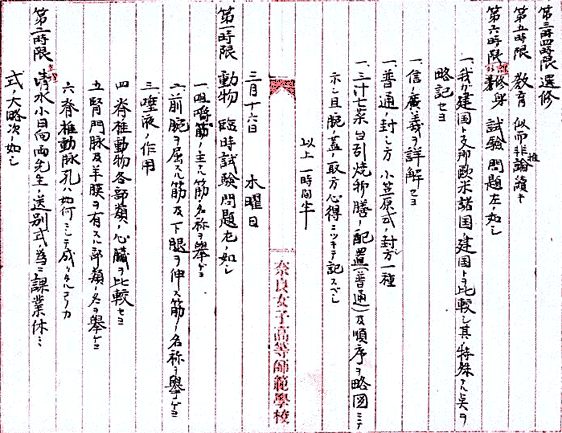 第三四時限 選修
第五時限 教育 似而非推論續キ
第六時限 修身 試驗問題左ノ如シ
一、我ガ建国ト支那欧米諸国ノ建国トヲ比較シ其ノ特殊ナル点ヲ
略記セヨ
一、信ノ廣義ヲ詳解セヨ
一、普通ノ封ジ方 小笠原式ノ封方一種
一、三汁七菜 台引焼物膳ノ配置(普通)及順序ヲ略図ニテ
示シ且腕蓋ノ取方心得ニツキテ記スベシ
以上 一時間半
三月十六日 木曜日
第一時限 動物 臨時試驗問題左ノ如シ
一、咀嚼筋ノ主ナル筋ノ名称ヲ舉ゲヨ
二、前腕ヲ屈スル筋及下腿ヲ伸ス筋ノ名称ヲ舉ゲヨ
三、唾液ノ作用
四、脊椎動物各部類ノ心臓ヲ比較セヨ
五、腎門脉及羊膜ヲ有スル部類ノ名ヲ舉ゲヨ
六、脊椎動脉孔ハ如何ニシテ成リタルアリカ
第二時限 清水小日向両先生ノ送別式為ニ課業休ミ
式大略次ノ如シ
奈良女子高等師範學校